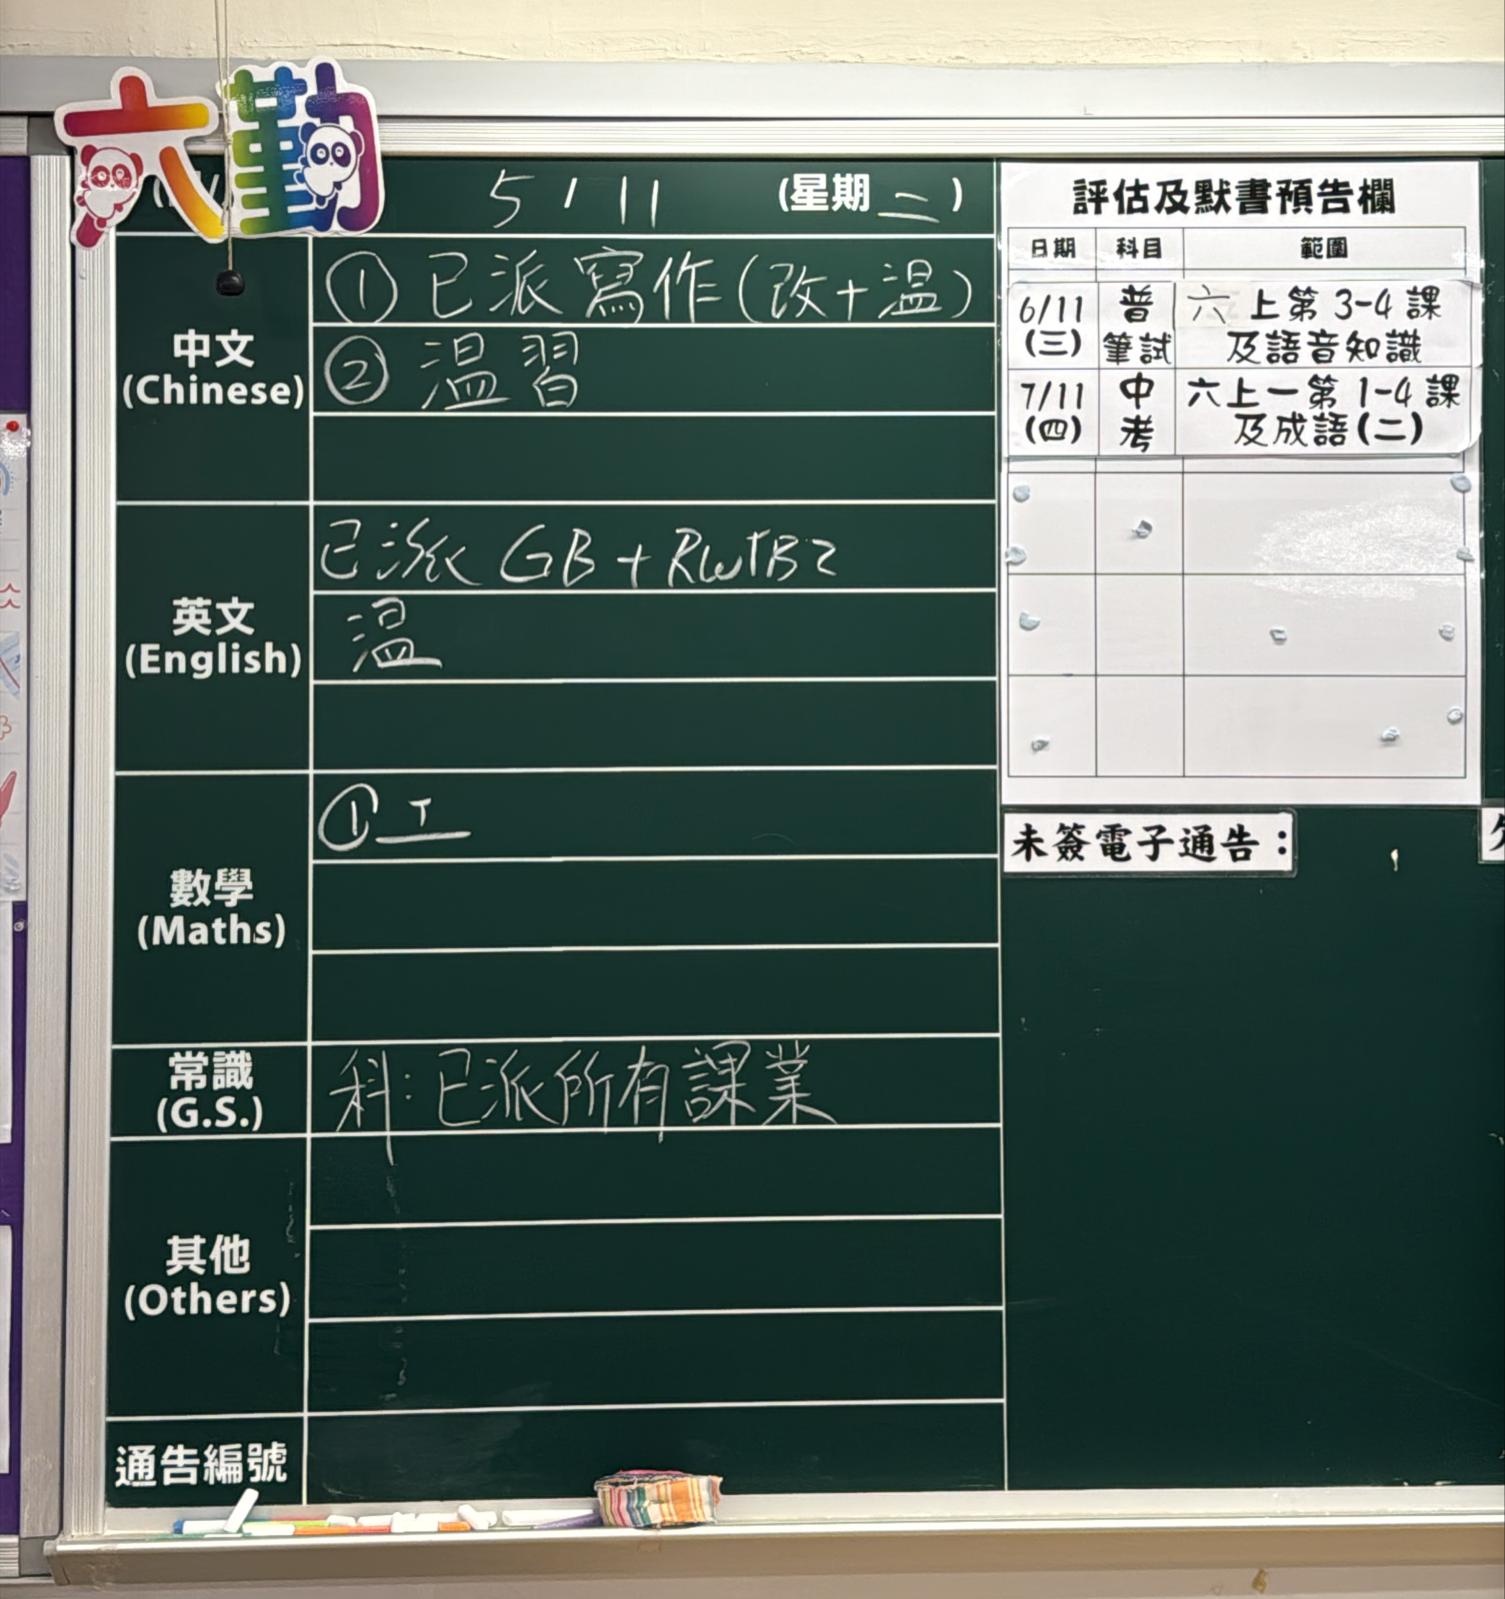 六勤
5 / 11 (星期二)
中文
(Chinese)
① 已派寫作(改+温)
② 温習
英文
(English)
已派 GB + RWTB2
温
數學
(Maths)
①
常識
(G.S.)
科:已派所有課業
其他
(Others)
通告編號
評估及默書預告欄
日期 科目 範圍
6/11 (三) 普 筆試 六上第3-4課 及語音知識
7/11 (四) 中 考 六上一第1-4課 及成語(二)
未簽電子通告: